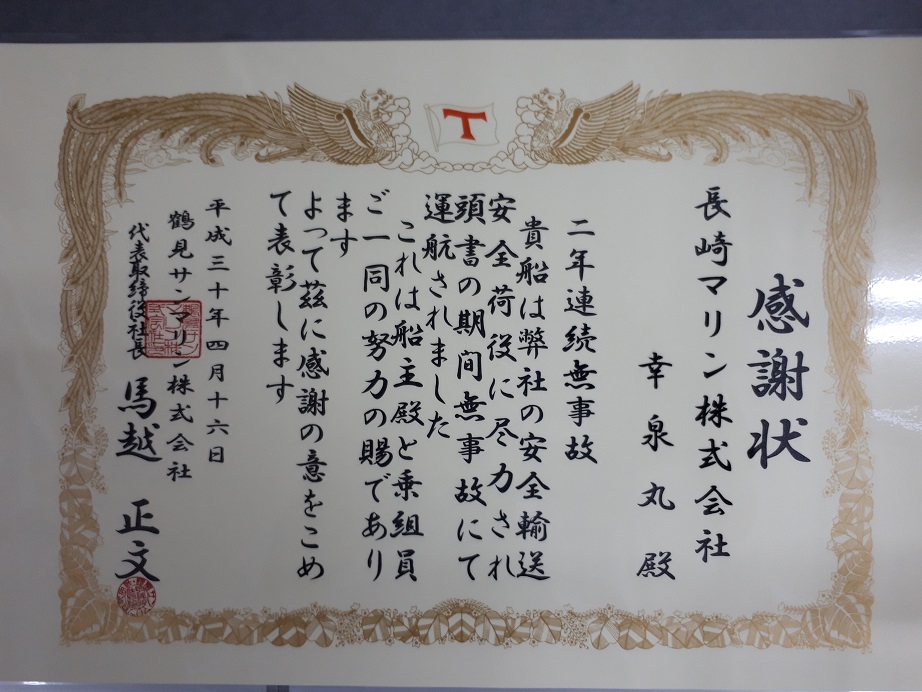 感謝状
長崎マリン株式会社
幸泉丸殿
二年連続無事故
貴船は弊社の安全輸送
安全荷役に尽力され
頭書の期間無事故にて
運航されました
これは船主殿と乗組員
ご一同の努力の賜であり
ます
よって茲に感謝の意をこめ
て表彰します
平成三十年四月十六日
鶴見サンマリン株式会社
代表取締役社長 馬越正文
T